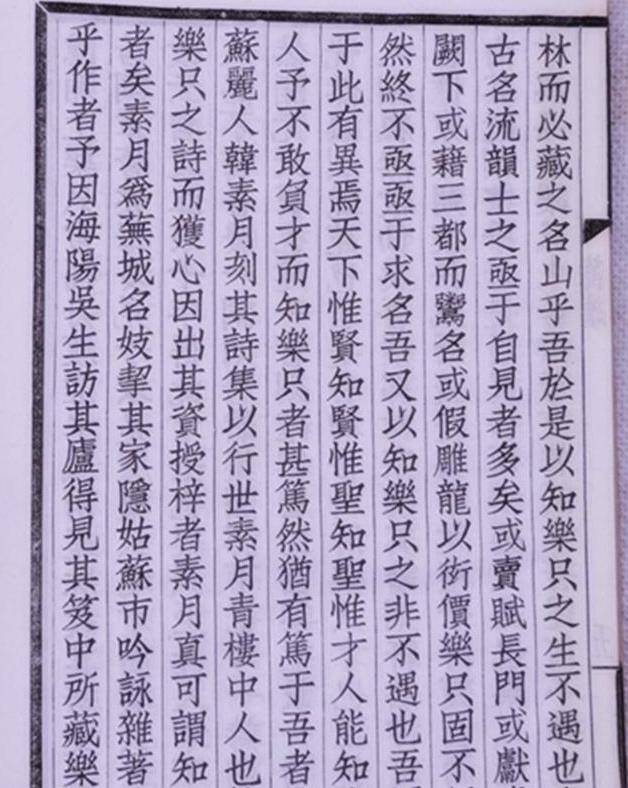 林而必藏之名山乎吾於是以知樂只之生不遇也
古名流韻士之亟于自見者多矣或賣賦長門或獻
闕下或藉三都而鬻名或假雕龍以衒價樂只固不
然終不亟亟于求名吾又以知樂只之非不遇也吾
于此有異焉天下惟賢知賢惟聖知聖惟才人能知
人予不敢負才而知樂只者甚篤然猶有篤于吾者
蘇麗人韓素月刻其詩集以行世素月青樓中人也
樂只之詩而獲心因出其資授梓者素月真可謂知
者矣素月為蕪城名妓挈其家隱姑蘇市吟詠雜著
乎作者予因海陽吳生訪其廬得見其笈中所藏樂